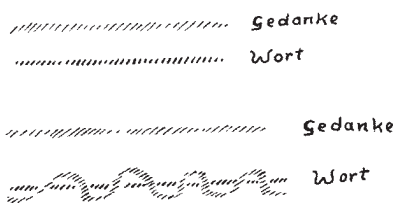 Gedanke
Wort
Gedanke
Wort